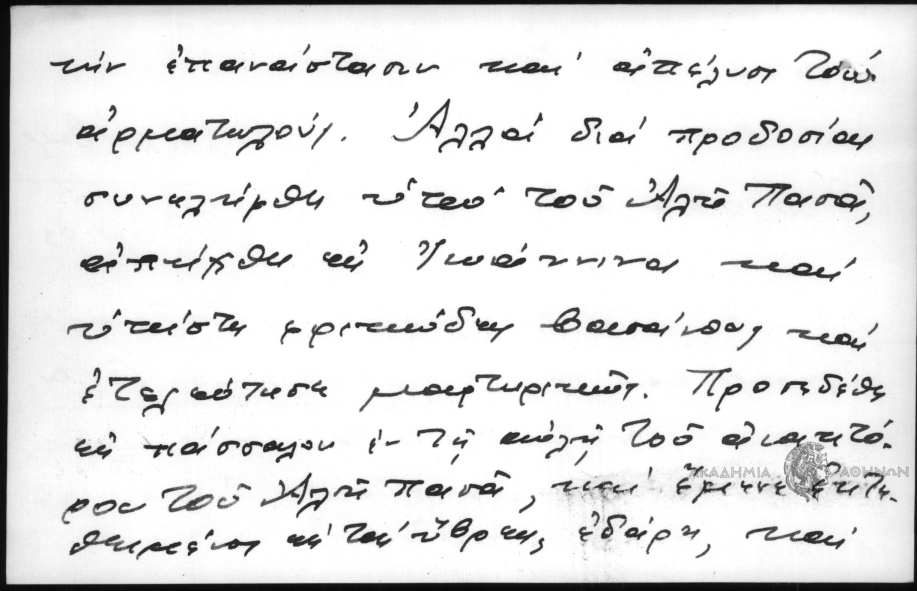 τὴν ἐπανάστασιν καὶ ἀπέλυσε τοὺς
ἁρματωλούς. Ἀλλὰ διὰ προδοσίαν
συνελήφθη ὑπὸ τοῦ Ἀλῆ Πασᾶ,
ἀπήχθη εἰς Ἰωάννινα καὶ
ὑπέστη φρικώδεις βασάνους καὶ
ἐτελεύτησε μαρτυρικῶς. Προσεδέθη
εἰς πάσσαλον ἐν τῇ αὐλῇ τοῦ ἀνακτό-
ρου τοῦ Ἀλῆ Πασᾶ, καὶ ἔμεινε ἐκτε-
θειμένος εἰς τὰς ὕβρεις, ἐδάρη, καὶ
ΑΚΑΔΗΜΙΑ ΑΘΗΝΩΝ